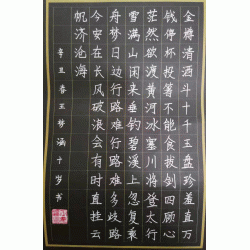 金樽清酒斗十千玉盘珍羞直万
钱停杯投箸不能食拔剑四顾心
茫然欲渡黄河冰塞川将登太行
雪满山闲来垂钓碧溪上忽复乘
舟梦日边行路难行路难多歧路
今安在长风破浪会有时直挂云
帆济沧海
辛丑春王涵十岁书